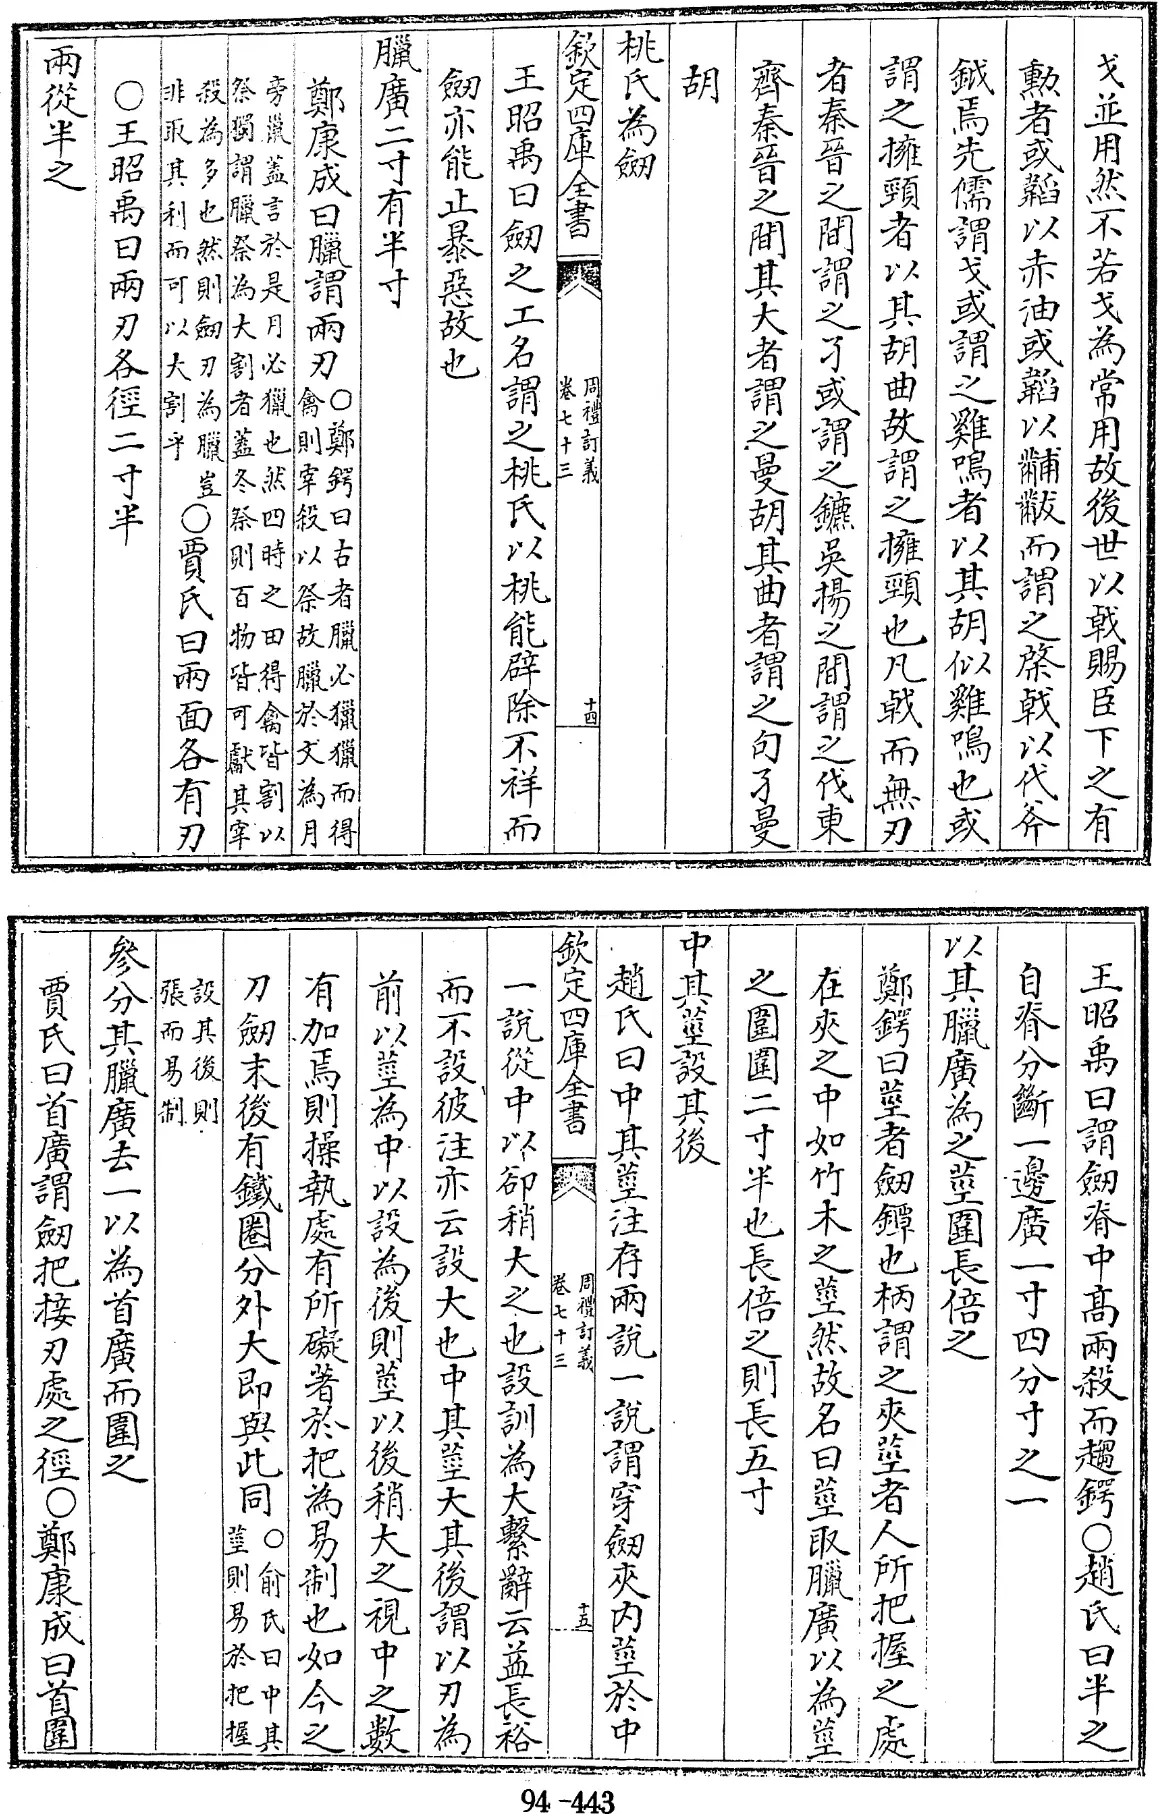 戈並用然不若戈為常用故後世以戟賜臣下之有
勲者或韜以赤油或韜以黼黻而謂之棨戟以代斧
鉞焉先儒謂戈或謂之雞鳴者以其胡似雞鳴也或
謂之擁頸者以其胡曲故謂之擁頸也凡戟而無刃
者秦晉之間謂之孑或謂之鏕吳揚之間謂之伐東
齊秦晉之間其大者謂之曼胡其曲者謂之句孑曼
胡
桃氏為劒
欽定四庫全書
周禮訂義
卷七十三
十四
王昭禹曰劒之工名謂之桃氏以桃能辟除不祥而
劒亦能止暴惡故也
臘廣二寸有半寸
鄭康成曰臘謂兩刃○鄭鍔曰古者臘必獵獵而得
禽則宰殺以祭故臘於文為月
旁巤蓋言於是月必獵也然四時之田得禽皆割以
祭獨謂臘祭為大割者蓋冬祭則百物皆可獻其宰
殺為多也然則劒刃為臘豈
非取其利而可以大割乎
○賈氏曰兩面各有刃
○王昭禹曰兩刃各徑二寸半
兩從半之
王昭禹曰謂劒脊中髙兩殺而趨鍔○趙氏曰半之
自脊分斷一邊廣一寸四分寸之一
以其臘廣為之莖圍長倍之
鄭鍔曰莖者劒鐔也柄謂之夾莖者人所把握之處
在夾之中如竹木之莖然故名曰莖取臘廣以為莖
之圍圍二寸半也長倍之則長五寸
中其莖設其後
趙氏曰中其莖注存兩説一説謂穿劒夾内莖於中
欽定四庫全書
周禮訂義
卷七十三
十五
一説從中以卻稍大之也設訓為大繫辭云益長裕
而不設彼注亦云設大也中其莖大其後謂以刃為
前以莖為中以設為後則莖以後稍大之視中之數
有加焉則操執處有所礙著於把為易制也如今之
刀劒末後有鐵圈分外大即與此同
○俞氏曰中其
莖則易於把握
設其後則
張而易制
參分其臘廣去一以為首廣而圍之
賈氏曰首廣謂劒把接刃處之徑○鄭康成曰首圍
94-443